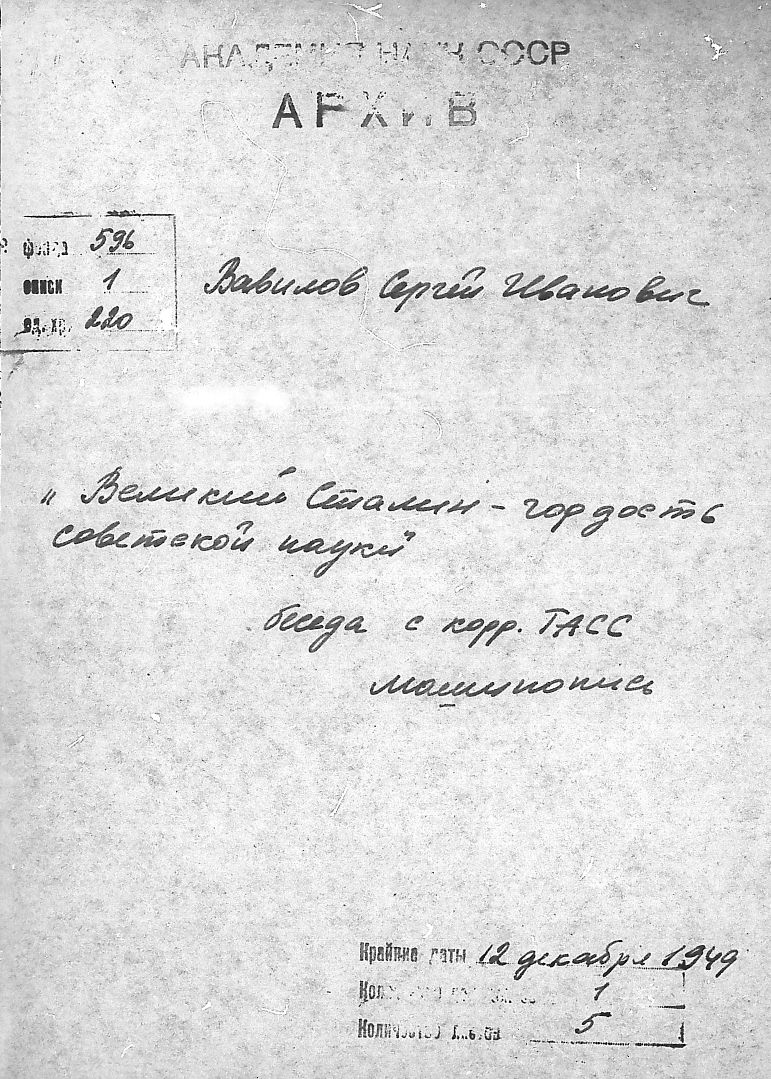 АКАДЕМИЯ НАУК СССР
АРХИВ
фонд 596
опись 1
ед. хр. 220
Вавилов Сергей Иванович
„Великий Сталин – гордость
советской науки"
беседа с корр. ТАСС
машинопись
Крайние даты 12 декабря 1949
1
Количество листов 5